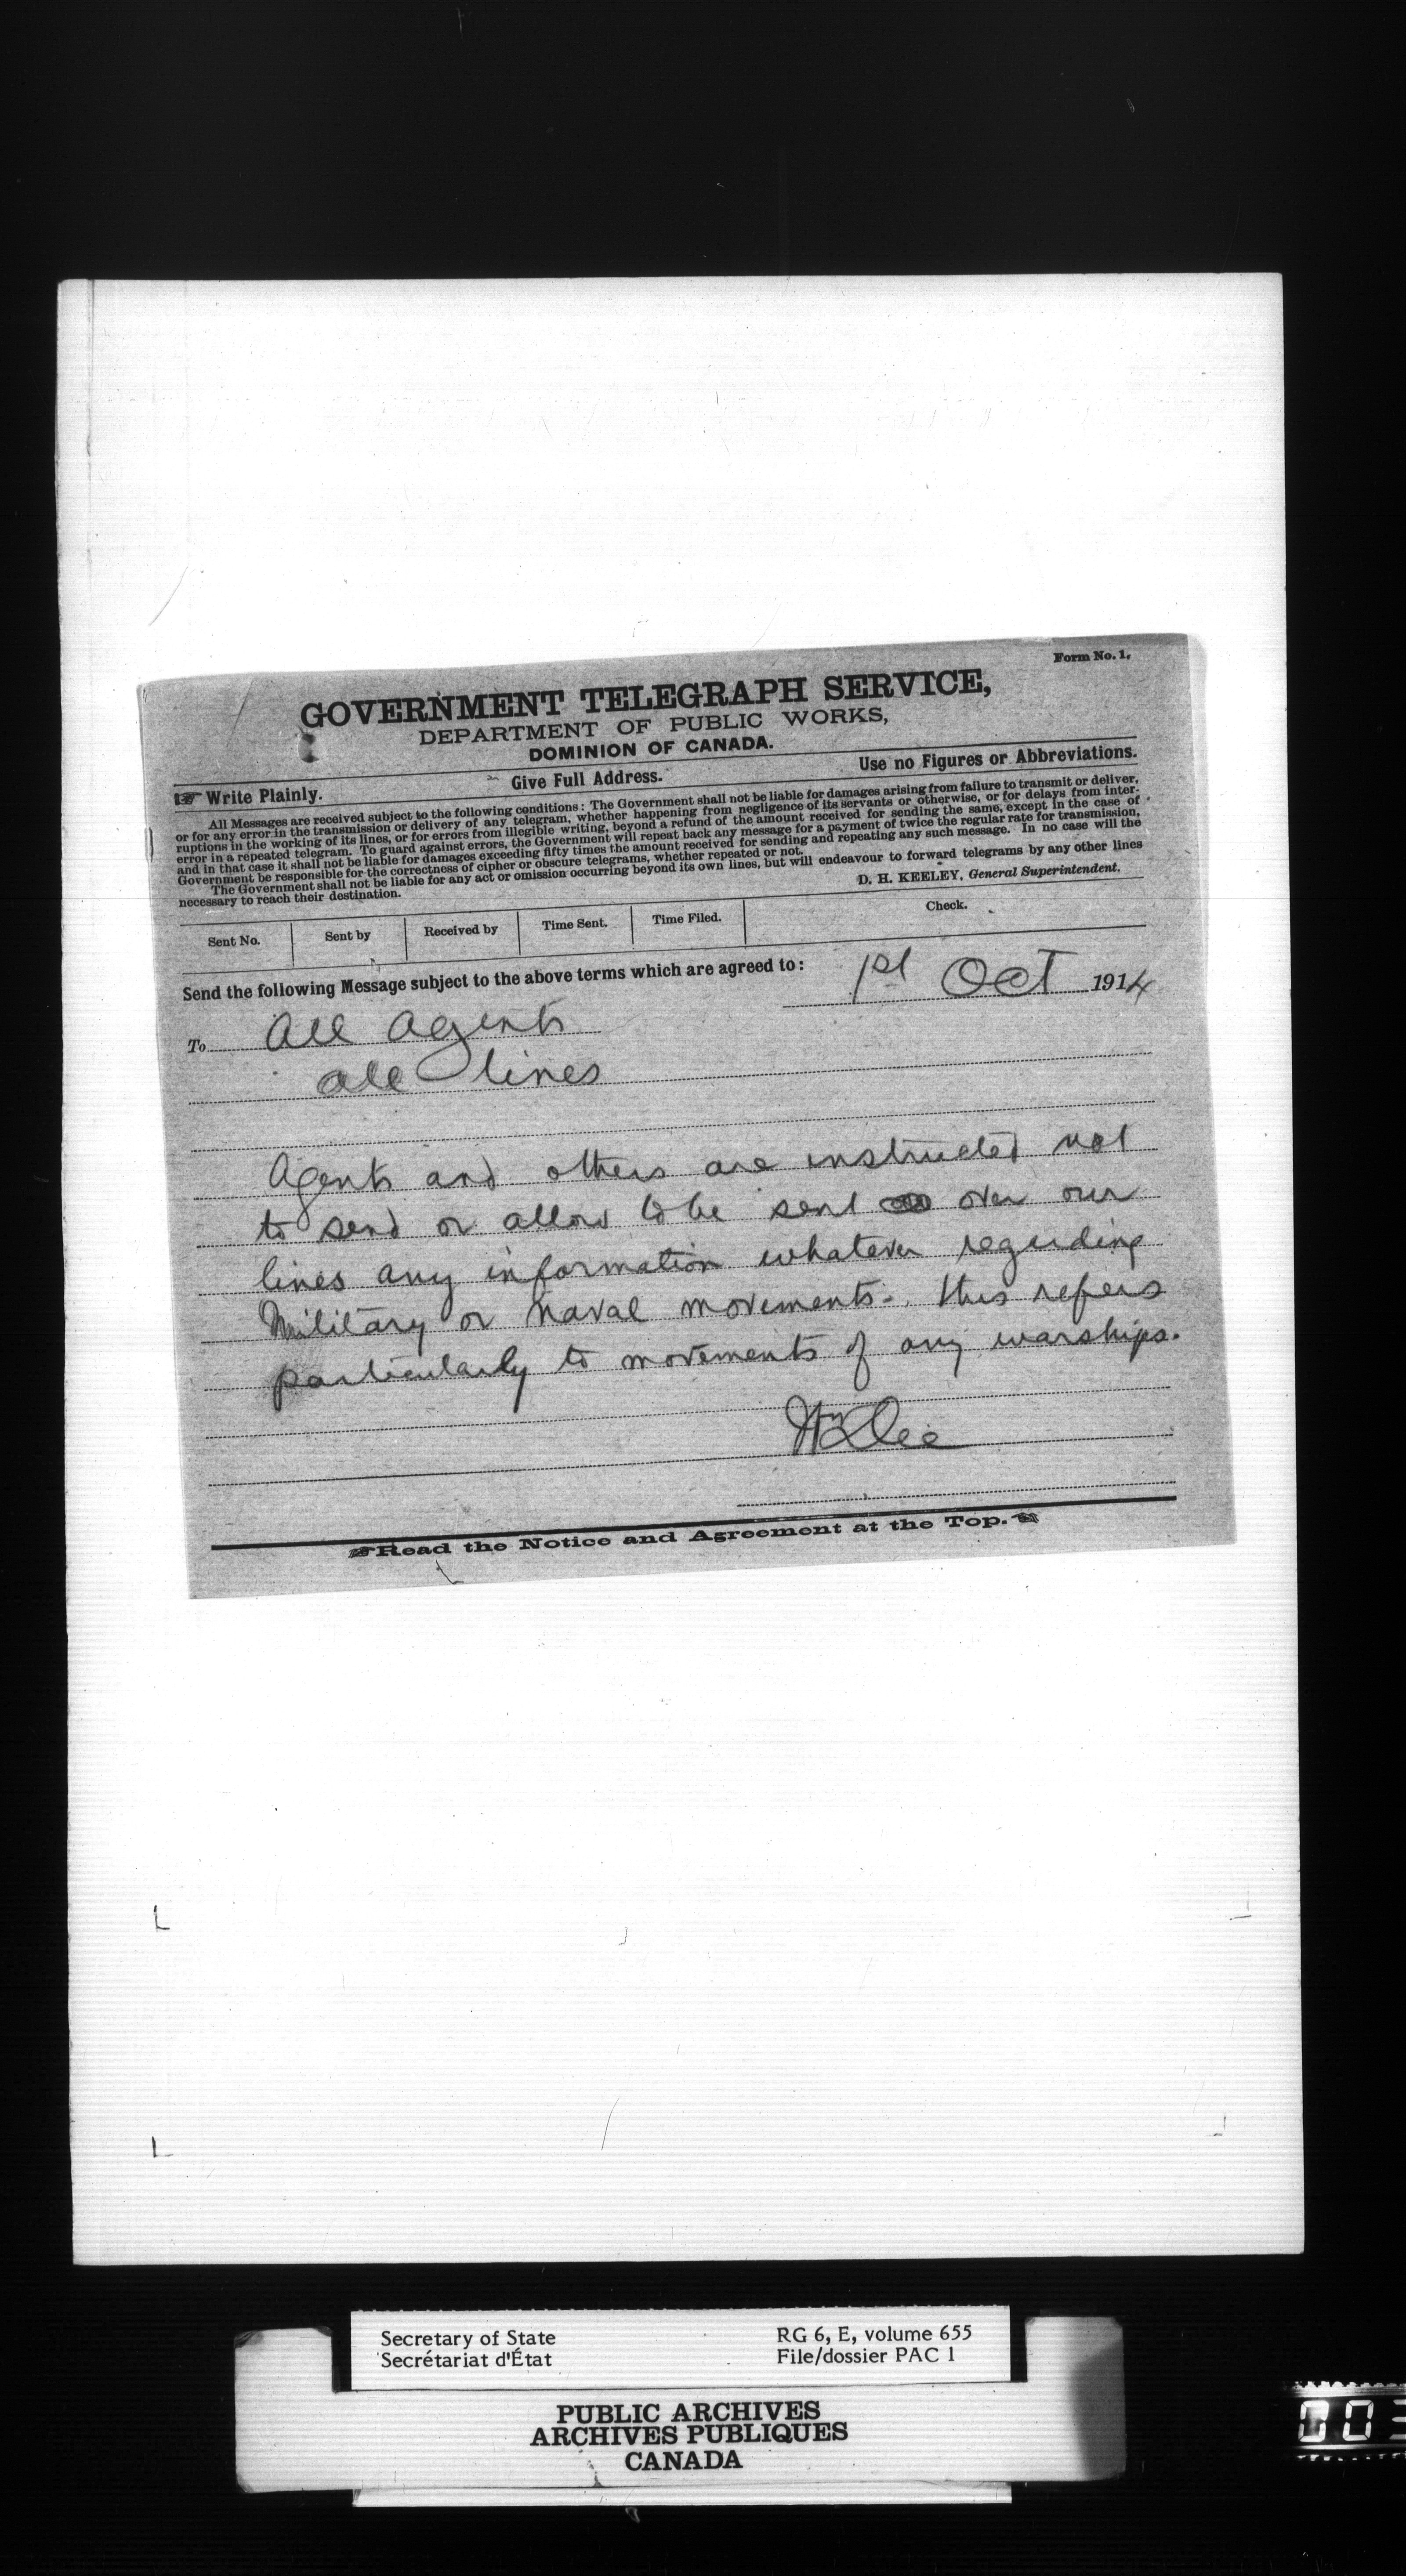 Form No. 1.
GOVERNMENT TELEGRAPH SERVICE,
DEPARTMENT OF PUBLIC WORKS,
DOMINION OF CANADA.
Write Plainly. Give Full Address. Use no Figures or Abbreviations.
All Messages are received subject to the following conditions: The Government shall not be liable for damages arising from failure to transmit or deliver,
or for any error in the transmission or delivery of any telegram, whether happening from negligence of its servants or otherwise, or for delays from inter-
ruptions in the working of its lines, or for errors from illegible writing, beyond a refund of the amount received for sending the same, except in the case of
error in a repeated telegram. To guard against errors, the Government will repeat back any message for a payment of twice the regular rate for transmission,
and in that case it shall not be liable for damages exceeding fifty times the amount received for sending and repeating any such message. In no case will the
Government be responsible for the correctness of cipher or obscure telegrams, whether repeated or not.
The Government shall not be liable for any act or omission occurring beyond its own lines, but will endeavour to forward telegrams by any other lines
necessary to reach their destination.
D. H. KEELEY, General Superintendent.
Sent No. Sent by Received by Time Sent. Time Filed. Check.
Send the following Message subject to the above terms which are agreed to: 1st Oct 1914
To All Agents
all lines
Agents and others are instructed not
to send or allow to be sent over our
lines any information whatever regarding
Military or Naval movements. this refers
particularly to movements of any warships.
Read the Notice and Agreement at the Top.
Secretary of State
Secrétariat d'État
RG 6, E, volume 655
File/dossier PAC 1
PUBLIC ARCHIVES
ARCHIVES PUBLIQUES
CANADA